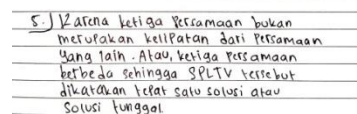 5.) Karena ketiga Persamaan bukan
merupakan kelipatan dari Persamaan
yang lain. Atau, ketiga Persamaan
berbeda sehingga SPLTV tersebut
dikatakan tepat satu solusi atau
Solusi tunggal